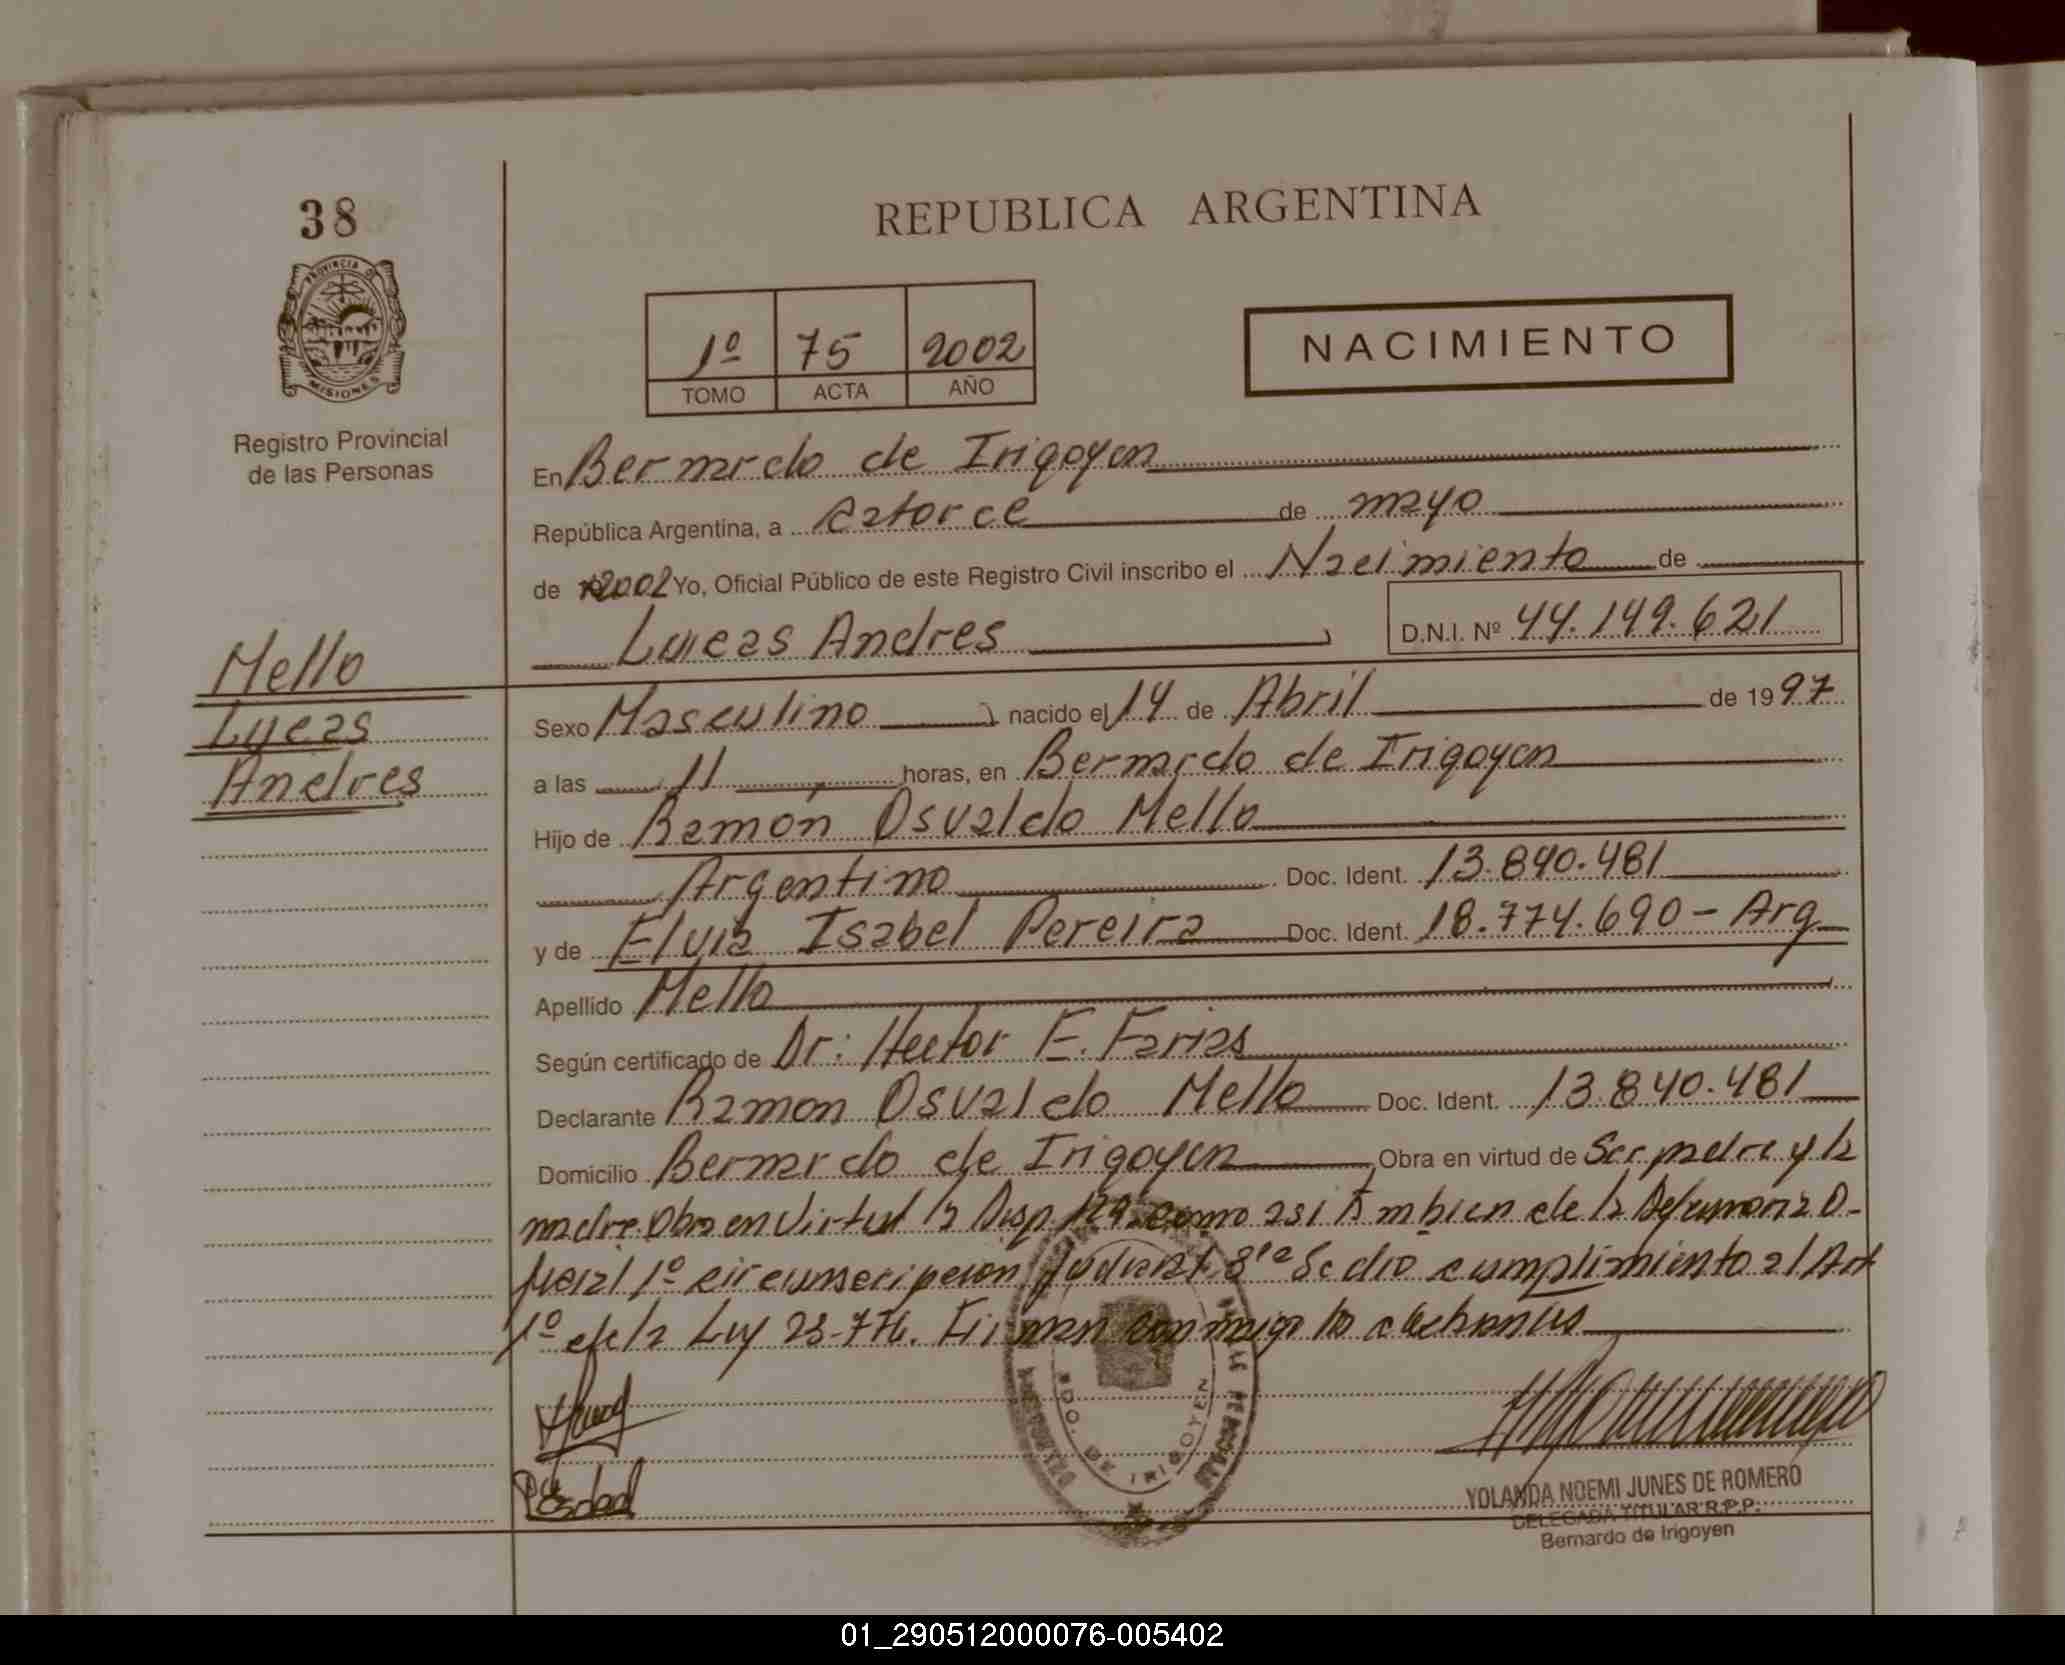 38
PROVINCIA DE
MISIONES
Registro Provincial
de las Personas
REPUBLICA ARGENTINA
1º 75 2002
TOMO ACTA AÑO
NACIMIENTO
En Bernardo de Irigoyen
República Argentina, a catorce de mayo
de 2002 Yo, Oficial Público de este Registro Civil inscribo el Nacimiento de
Lucas Andres D.N.I. Nº 44.149.621
Mello
Lucas
Andres
Sexo Masculino nacido el 14 de Abril de 1997
a las 11 horas, en Bernardo de Irigoyen
Hijo de Ramón Osvaldo Mello
Argentino Doc. Ident. 13.840.481
y de Elvia Isabel Pereira Doc. Ident. 18.774.690 - Arg
Apellido Mello
Según certificado de Dr: Hector E. Farias
Declarante Ramon Osvaldo Mello Doc. Ident. 13.840.481
Domicilio Bernardo de Irigoyen Obra en virtud de Ser padre y la
madre. Obra en virtud la Disp. como asi tambien de la O-
ficial 1º circunscripcion Judicial Se dio cumplimiento al Art
1º de la Ley 23.776. Firman conmigo
BDO. DE IRIGOYEN
YOLANDA NOEMI JUNES DE ROMERO
DELEGADA TITULAR R.P.P.
Bernardo de Irigoyen
01_290512000076-005402